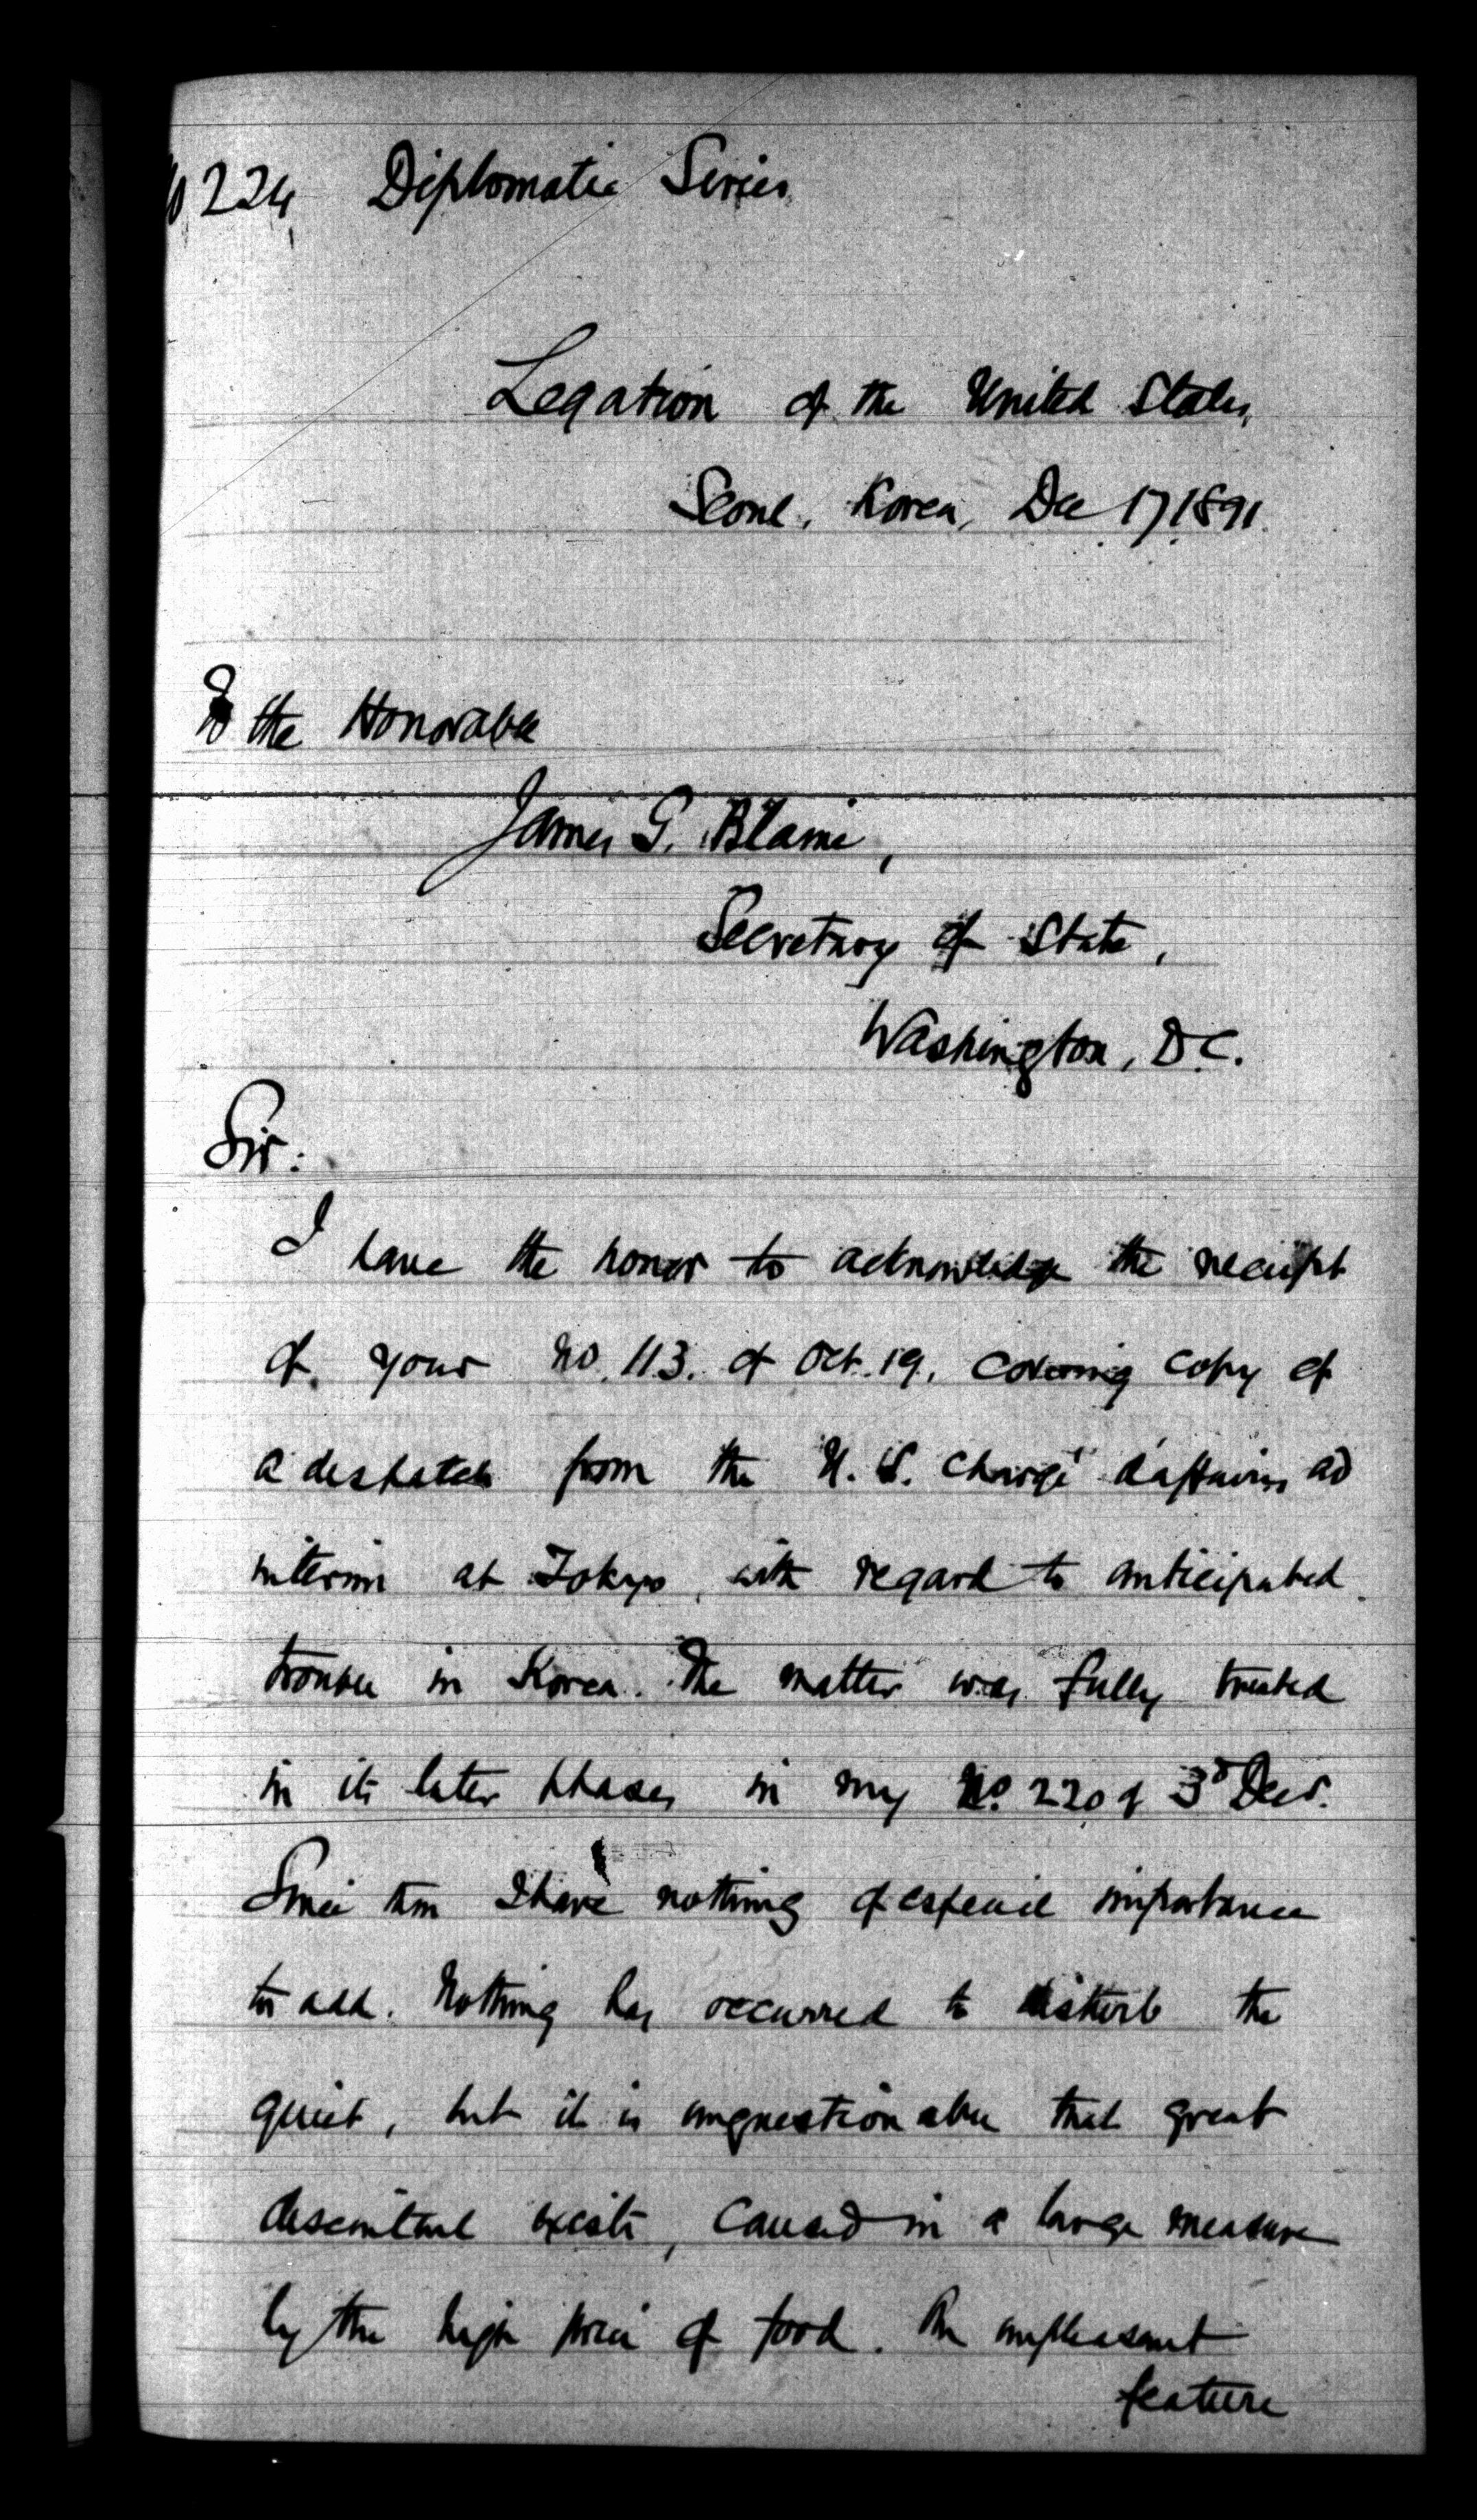 No 224, Diplomatic Series.
Legation of the United States,
Seoul, Korea, Dec 17, 1891.
To the Honorable
James G. Blaine,
Secretary of State,
Washington, D.C.
Sir:
I have the honor to acknowledge the receipt
of your No. 113. of Oct. 19, covering copy of
a despatch from the U. S. Chargé d'affaires ad
interim at Tokyo, with regard to anticipated
trouble in Korea. The matter was fully treated
in its later phases in my No. 220 of 3d Decr.
Since then I have nothing of especial importance
to add. Nothing has occurred to disturb the
quiet, but it is unquestionable that great
discontent exists, caused in a large measure
by the high price of food. An unpleasant
feature